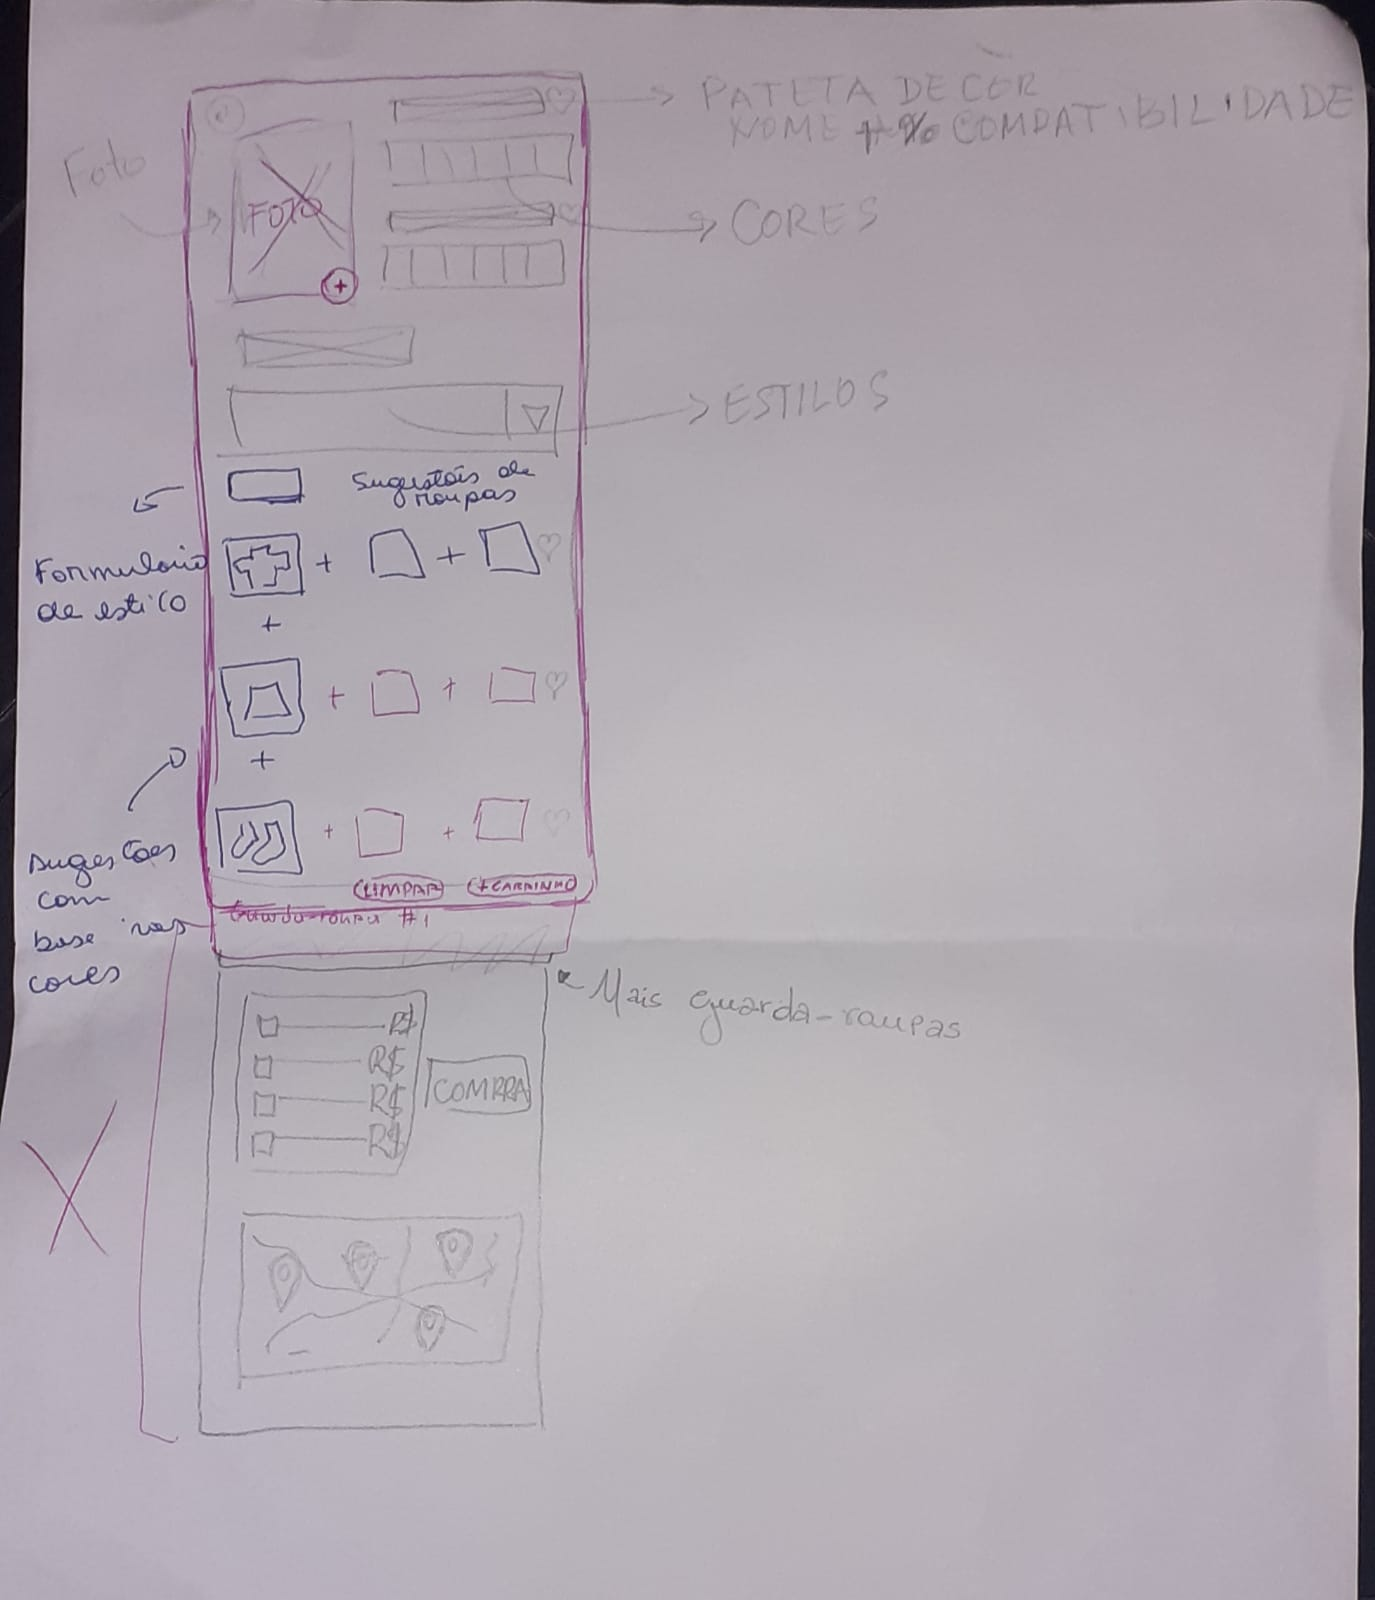 PATETA DE COR
NOME + % COMPATIBILIDADE
Foto
FOTO
+
CORES
ESTILOS
Sugestões de
roupas
Formulario
de estilo
+ +
+
+ +
+
+ +
sugestões
com
base nas
cores
LIMPAR
+CARRINHO
Guarda-roupa #1
Mais guarda-roupas
R$
R$
R$
R$
COMPRA